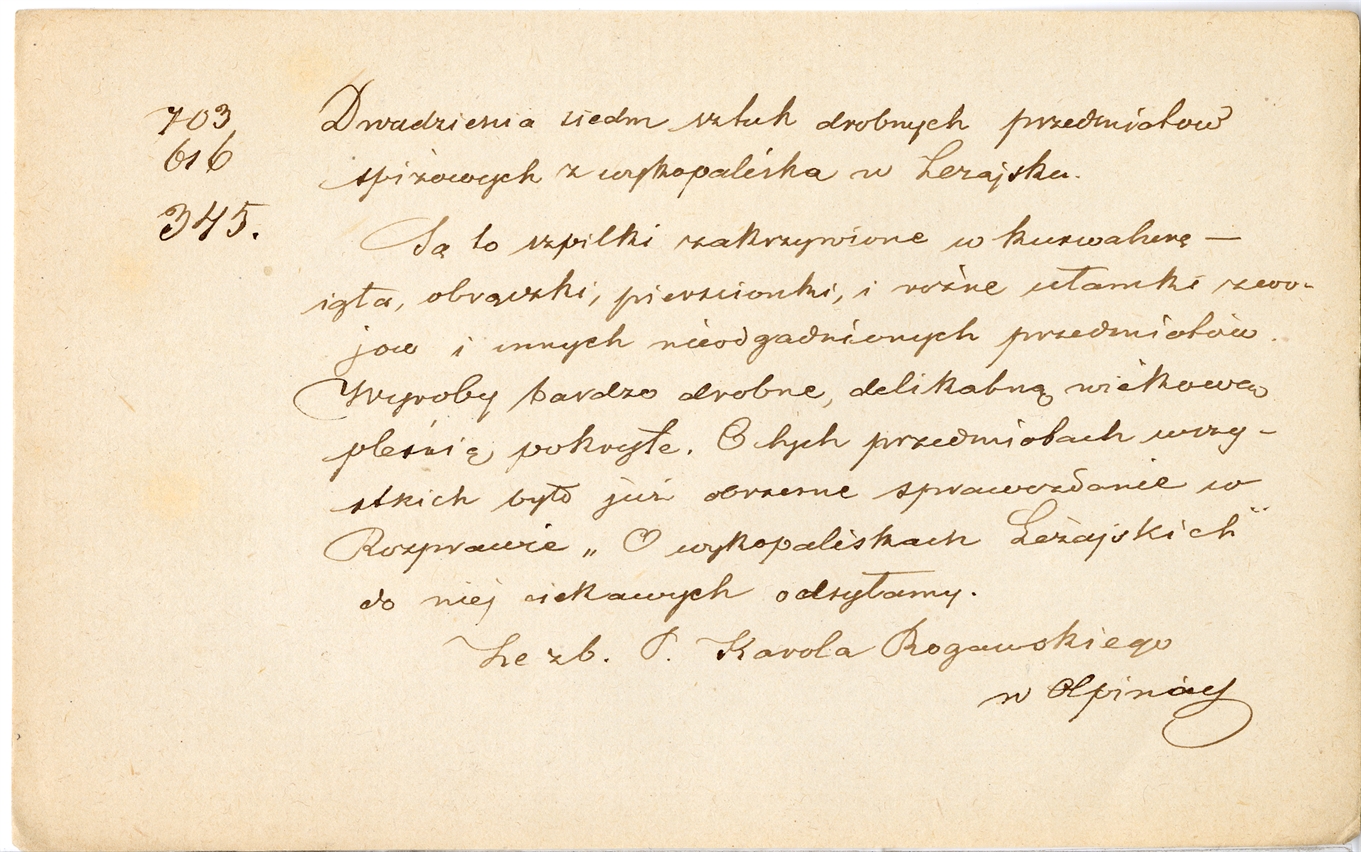 703
616
345.
Dwadzieścia siedm sztuk drobnych przedmiotów
spiżowych z wykopaliska w Leżajsku.
Są to szpilki zakrzywione w kuzwaherę —
igła, obrączki, pierścionki, i rożne ułamki zwo-
jow i innych nieodgadnionych przedmiotów.
Wyroby bardzo drobne, delikatną wiekową
pleśnią pokryte. O tych przedmiotach wszy-
stkich było już obszerne sprawozdanie w
Rozprawie „ O wykopaliskach Leżajskich"
do niej ciekawych odsyłamy.
Ze zb. P. Karola Rogawskiego
w Ołpinach